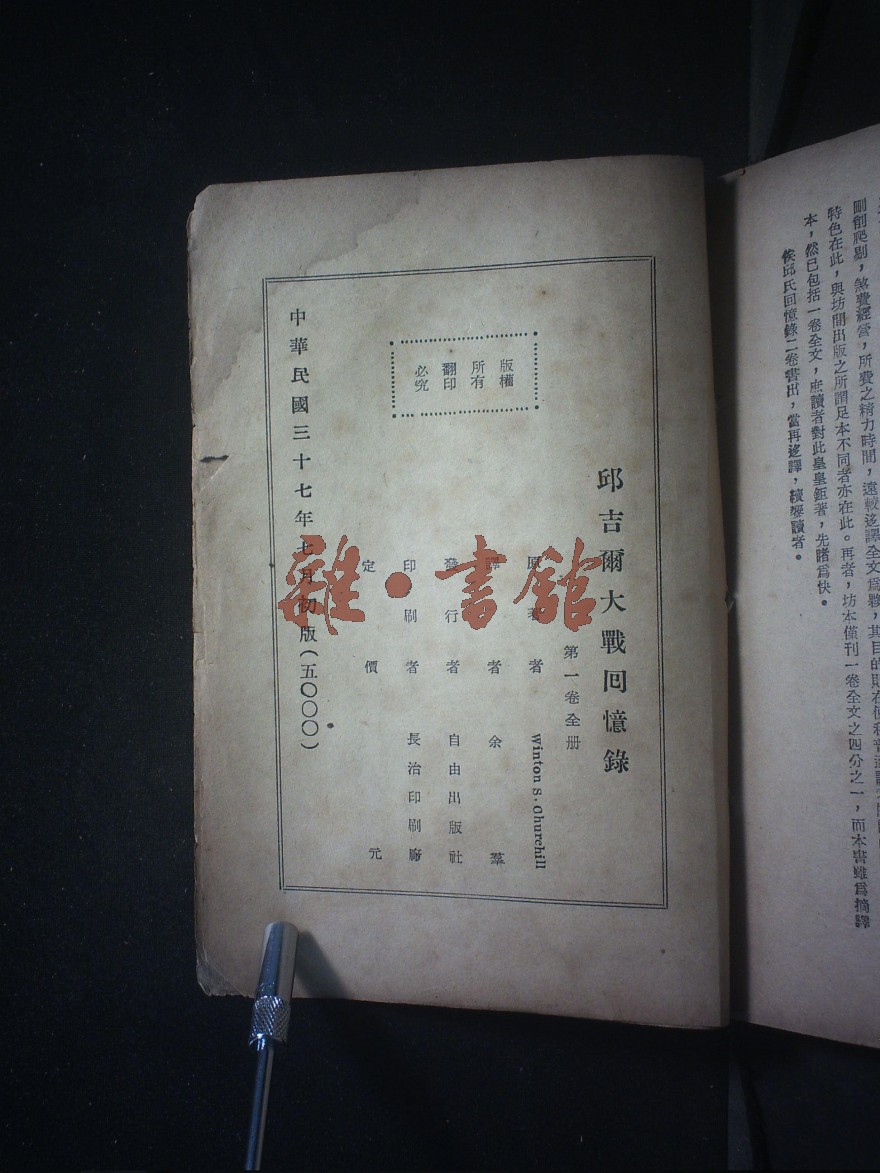 剛削爬剔，煞費經營，所費之精力時間，遠較迻譯全文爲夥，其目的則在使
特色在此，與坊間出版之所謂足本不同者亦在此。再者，坊本僅刊一卷全文之四分之一，而本書雖爲摘譯
本，然已包括一卷全文，庶讀者對此皇皇鉅著，先睹爲快。
俟邱氏回憶錄二卷書出，當再迻譯，續饗讀者。
邱吉爾大戰回憶錄
第一卷全册
原著者 Winton S. Churehill
譯者 余羣
發行者 自由出版社
印刷者 長治印刷廠
定價 元
版權
所有
翻印
必究
中華民國三十七年七月初版(五〇〇〇)
雜·書館